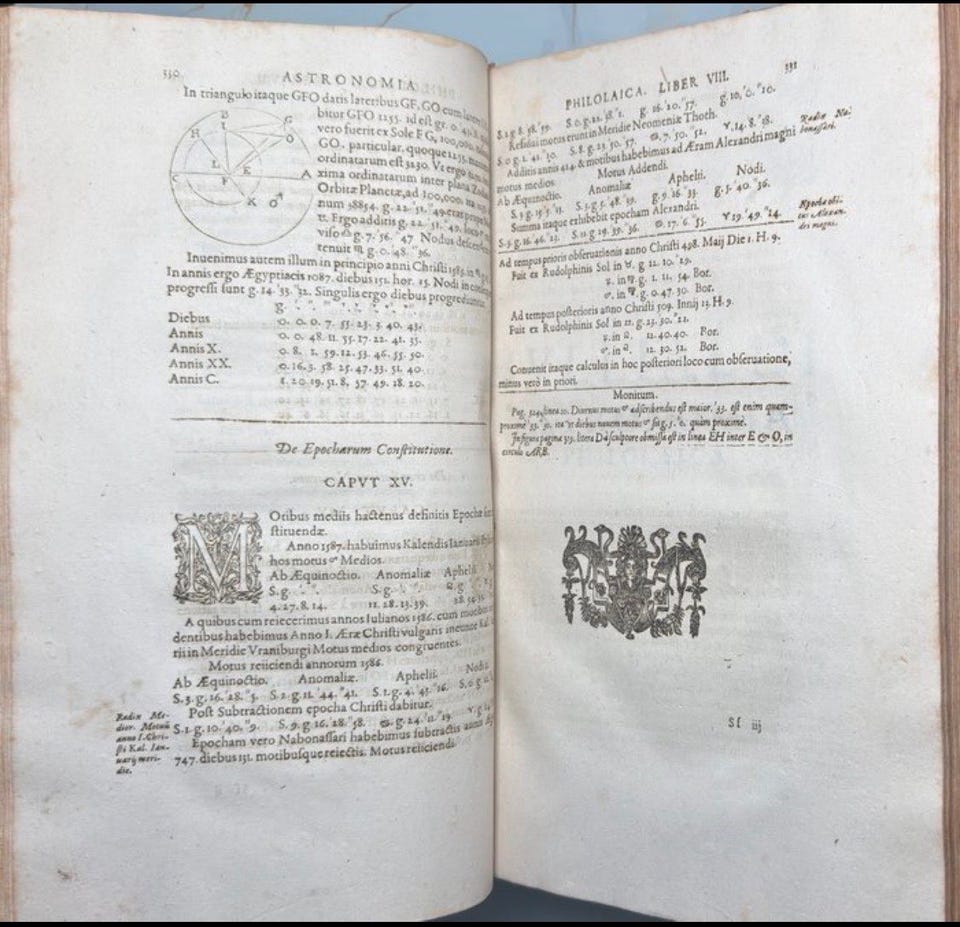 330
ASTRONOMIA
In triangulo itaque GFO datis lateribus GF, GO cum
bitur GFO 1255. id est gr. 0.
vero fuerit ex Sole FG, 100,000.
GO. particular, quoque
ordinatarum est 3230. Vt ergo
xima ordinatarum inter plana
Orbitæ Planetæ, ad 100,000. ita
num 38854. g. 22. '51. "49. erat
Ergo additis g. 22. '51. "49. loco
viso g. 7. '56. "47 Nodus
tenuit g. 0. '48. "36.
B
H
I
G
O
L
E
C
F
A
K
O
Inuenimus autem illum in principio anni Christi 1585. in
In annis ergo Ægyptiacis 1087. diebus 151. hor. 15. Nodi in
progressi sunt g. 14. '33. "32. Singulis ergo diebus
g.
Diebus 0. 0. 0. 7. 55. 23. 3. 40. 43.
Annis 0. 0. 48. 11. 55. 17. 22. 41. 35.
Annis X. 0. 8. 1. 59. 12. 53. 46. 55. 50.
Annis XX. 0. 16. 3. 58. 25. 47. 33. 51. 40.
Annis C. 1. 20. 19. 51. 8. 37. 49. 18. 20.
De Epocharum Constitutione.
CAPVT XV.
MOtibus mediis hactenus definitis Epochæ
stituendæ.
Anno 1587. habuimus Kalendis Ianuariis
hos motus ♂ Medios.
Ab Æquinoctio. Anomaliæ Aphelii
S. g. S. g. g.
4. 27. 8. 14. 11. 28. 13. 39. 28. 54.
A quibus cum reiecerimus annos Iulianos 1586. cum motibus
dentibus habebimus Anno I. Æræ Christi vulgaris ineunte Kal.
rii in Meridie Vraniburgi Motus medios congruentes.
Motus reiiciendi annorum 1586.
Ab Æquinoctio. Anomaliæ. Aphelii. Nodi
S. 3. g. 16. '28. "5. S. 2. g. 11. '44. "41. S. 1. g. 4. '43. "
Post Subtractionem epocha Christi dabitur.
S. 1. g. 10. '40. "9. S. 9. g. 16. '28. "58. g. 24. '11. "19.
Radix Me-
dior. Motuũ
anno I. Chri-
sti Kal. Ian-
uarij meri-
die.
Epocham vero Nabonassari habebimus subtractis annis
747. diebus 131. motibusque reiectis. Motus reiiciendi.
PHILOLAICA. LIBER VIII.
331
S. 1 g. 8. '58. '59. S. 0. g. 22. '58. "1. g. 16. '20. "57. g. 10. "10.
Residui motus erunt in Meridie Neomeniæ Thoth.
S. 0 g. 1. '41. '10. S. 8. g. 23. '30. '57. 7. '50. "52. 14. '8. "58.
Radix Na-
bonassari.
Additis annis 424. & motibus habebimus ad Æram Alexandri magni
motus medios. Motus Addendi.
Ab Æquinoctio. Anomaliæ Aphelii. Nodi.
S. 3 g. 15. '5. "13. S. 3. g. 5. '48. "39. g. 9. '16. "33. g. 5. '40. "36.
Summa itaque exhibebit epocham Alexandri.
S. 3. g. 16. '46. "23. S. 11. g. 29. '39. "36. 17. '6. "55. 19. '49. "24.
Epocha obi-
tus Alexan-
dri magni.
Ad tempus prioris obseruationis anno Christi 498. Maij Die 1. H. 9.
Fuit ex Rudolphinis Sol in ♉. g 12. 10. '29.
g. 1. 11. 54. Bor.
♂. in g. 0. 47. 30. Bor.
Ad tempus posterioris anno Christi 509. Innij 13. H. 9.
Fuit ex Rudolphinis Sol in g. 23. 30. "21.
in 12. 40. 40. Bor.
♂. in 12. 30. 52. Bor.
Conuenit itaque calculus in hoc posteriori loco cum obseruatione,
minus verò in priori.
Monitum.
Pag. 324. linea 10. Diurnus motus ♂ adscribendus est maior. '33. est enim quam-
proxime '33. '30. ita vt diebus nouem motus ♂ sit g. 5. '0. quàm proximè.
In figura pagina 329. litera D à sculptore obmissa est in linea EH inter E & O, in
circulo ARB.
Sf iij